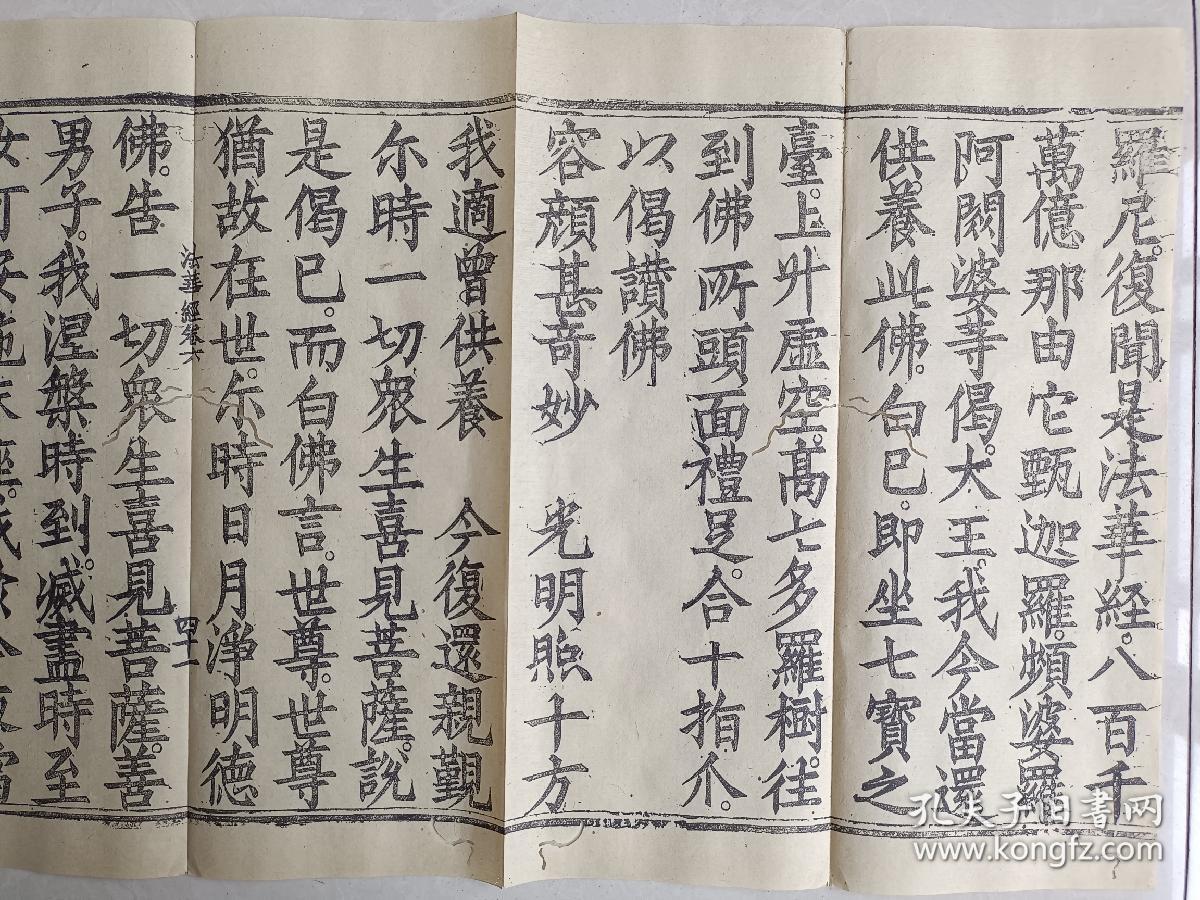 羅尼。復聞是法華経。八百千
萬億那由它甄迦羅。頻婆羅
阿閦婆等偈。大王。我今當還
供養此佛。白已。即坐七寶之
臺。上升虛空。髙七多羅樹。往
到佛所頭面禮足。合十指爪。
以偈讃佛
容顔甚奇妙 光明照十方
我適曾供養 今復還親覲
尔時一切衆生喜見菩薩。說
是偈已。而白佛言。世尊。世尊
猶故在世。尔時日月淨明徳
法華經卷六 四十一
佛。告一切衆生喜見菩薩。善
男子。我涅槃時到。滅盡時至
孔夫子旧書网
www.kongfz.com